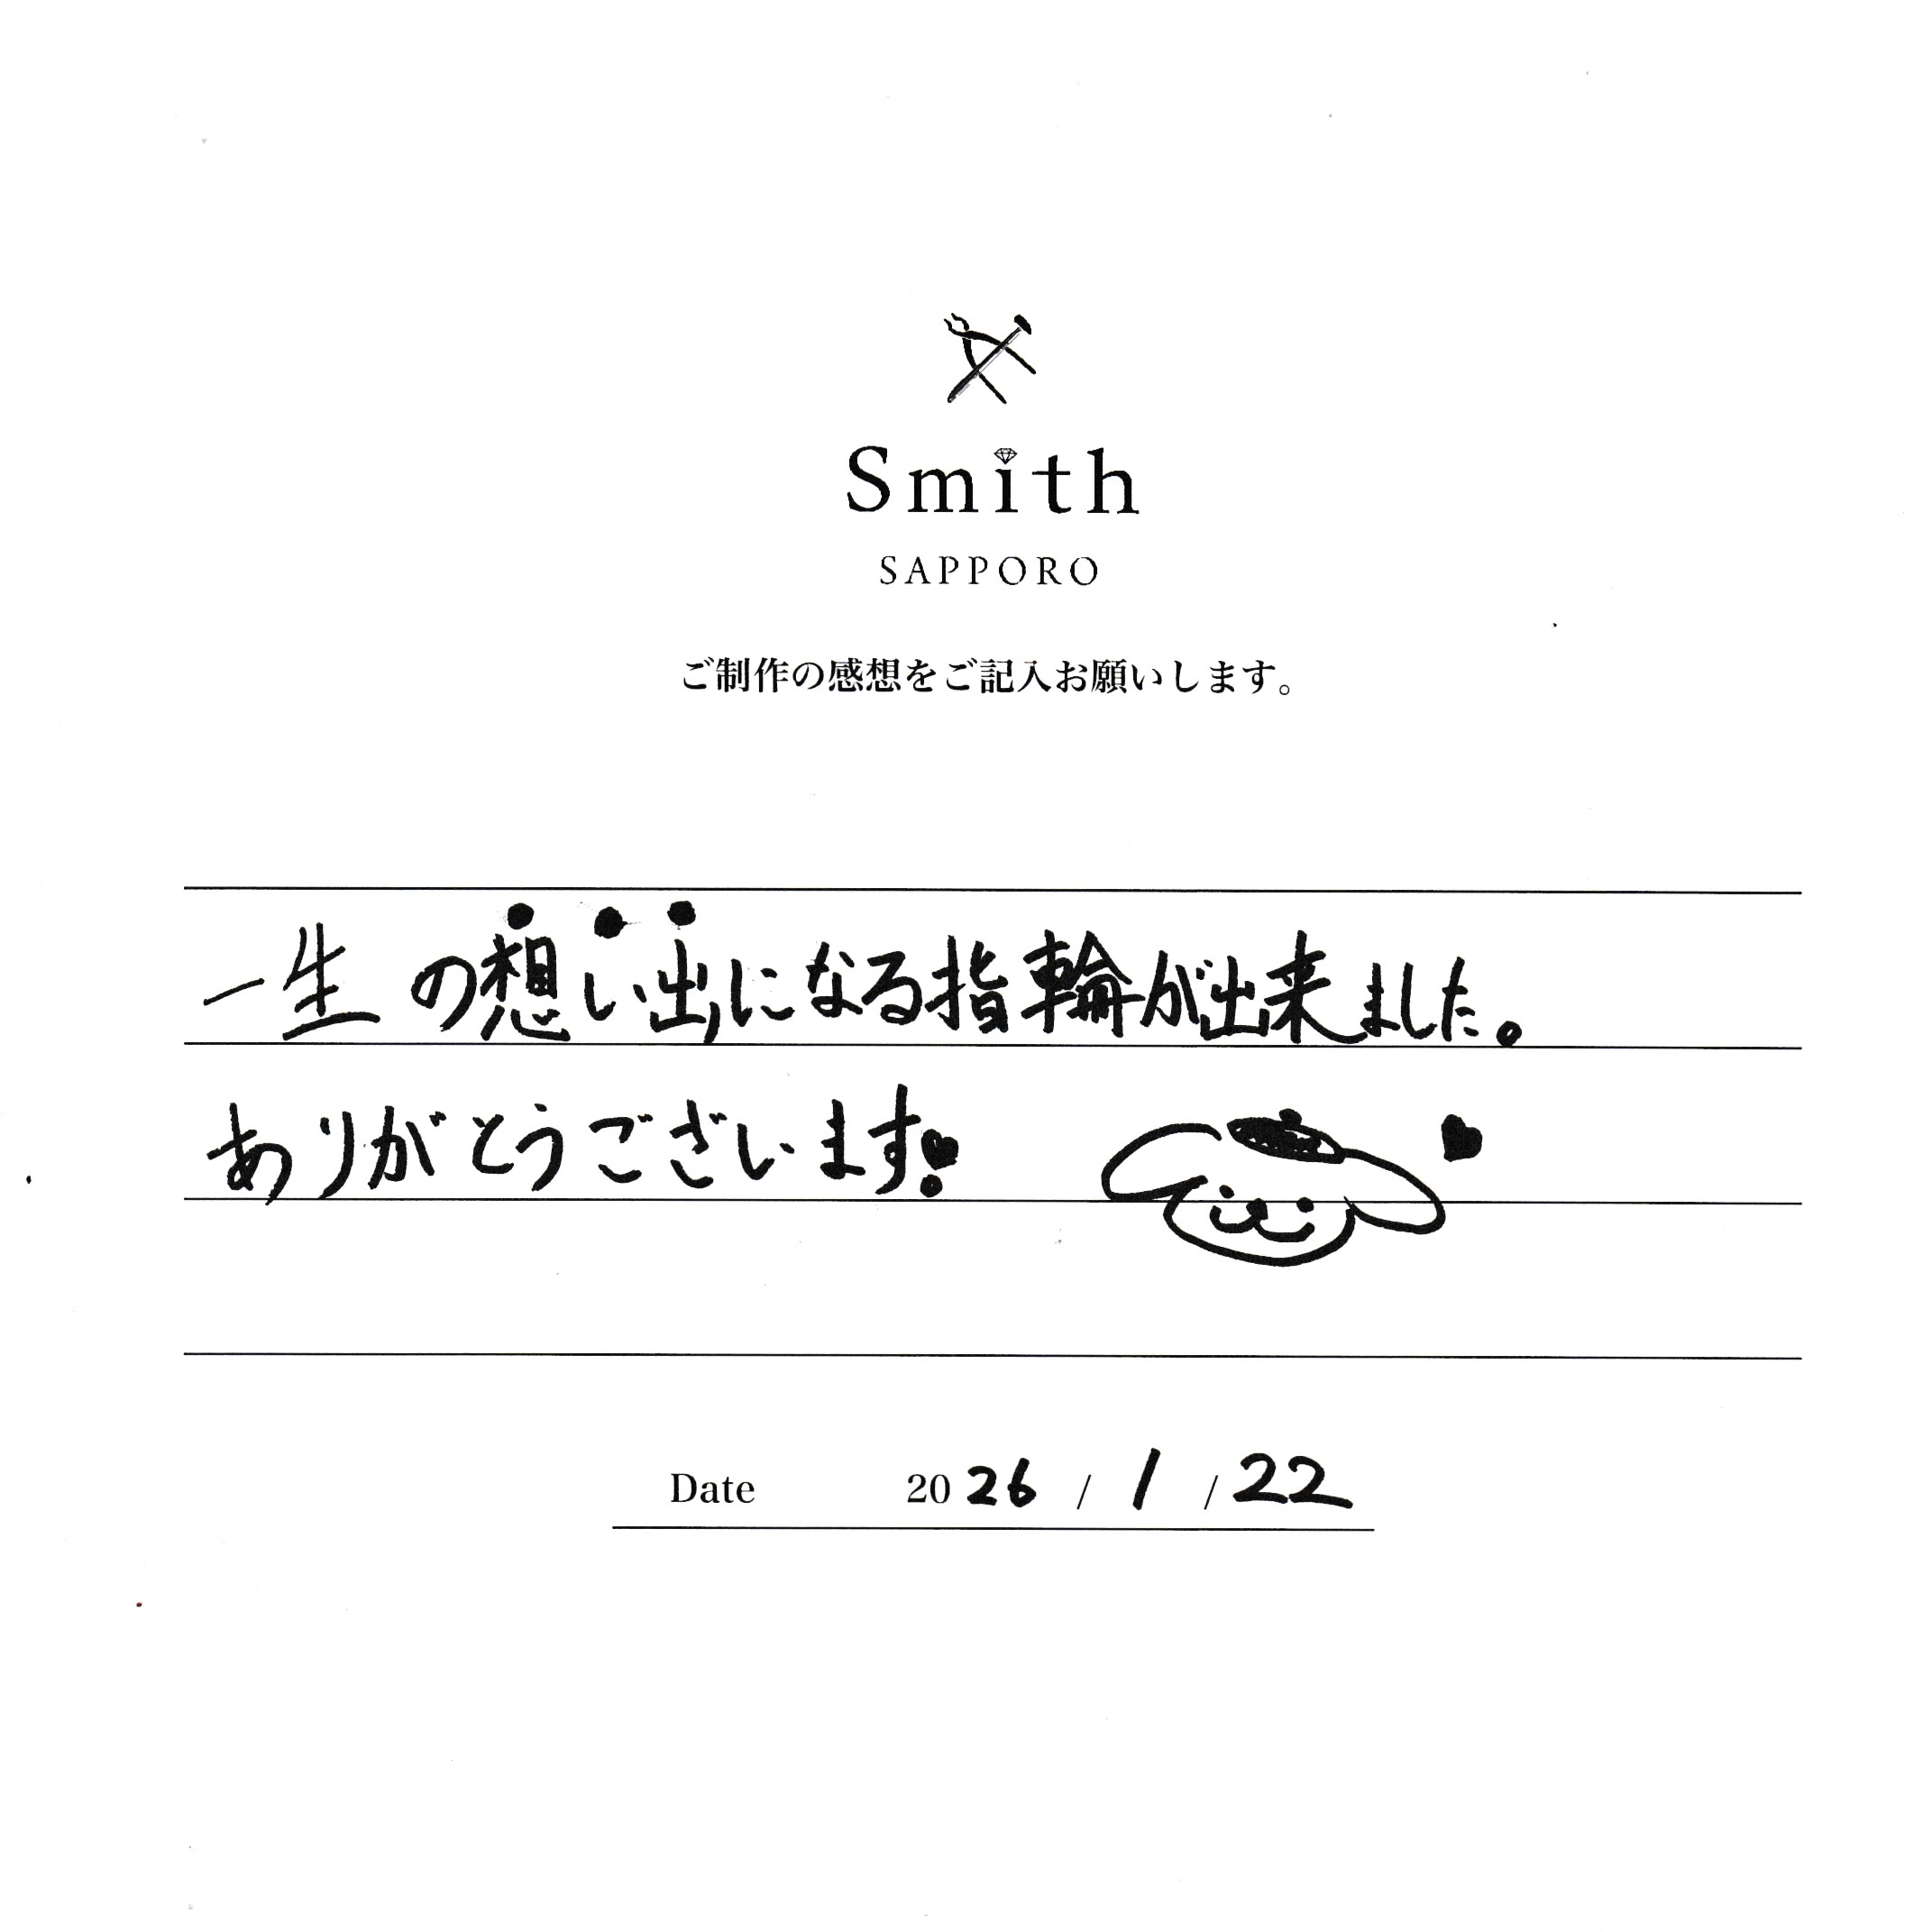 Smith
SAPPORO
ご制作の感想をご記入お願いします。
一生の想い出になる指輪が出来ました。
ありがとうございます!
Date 2026 / 1 / 22